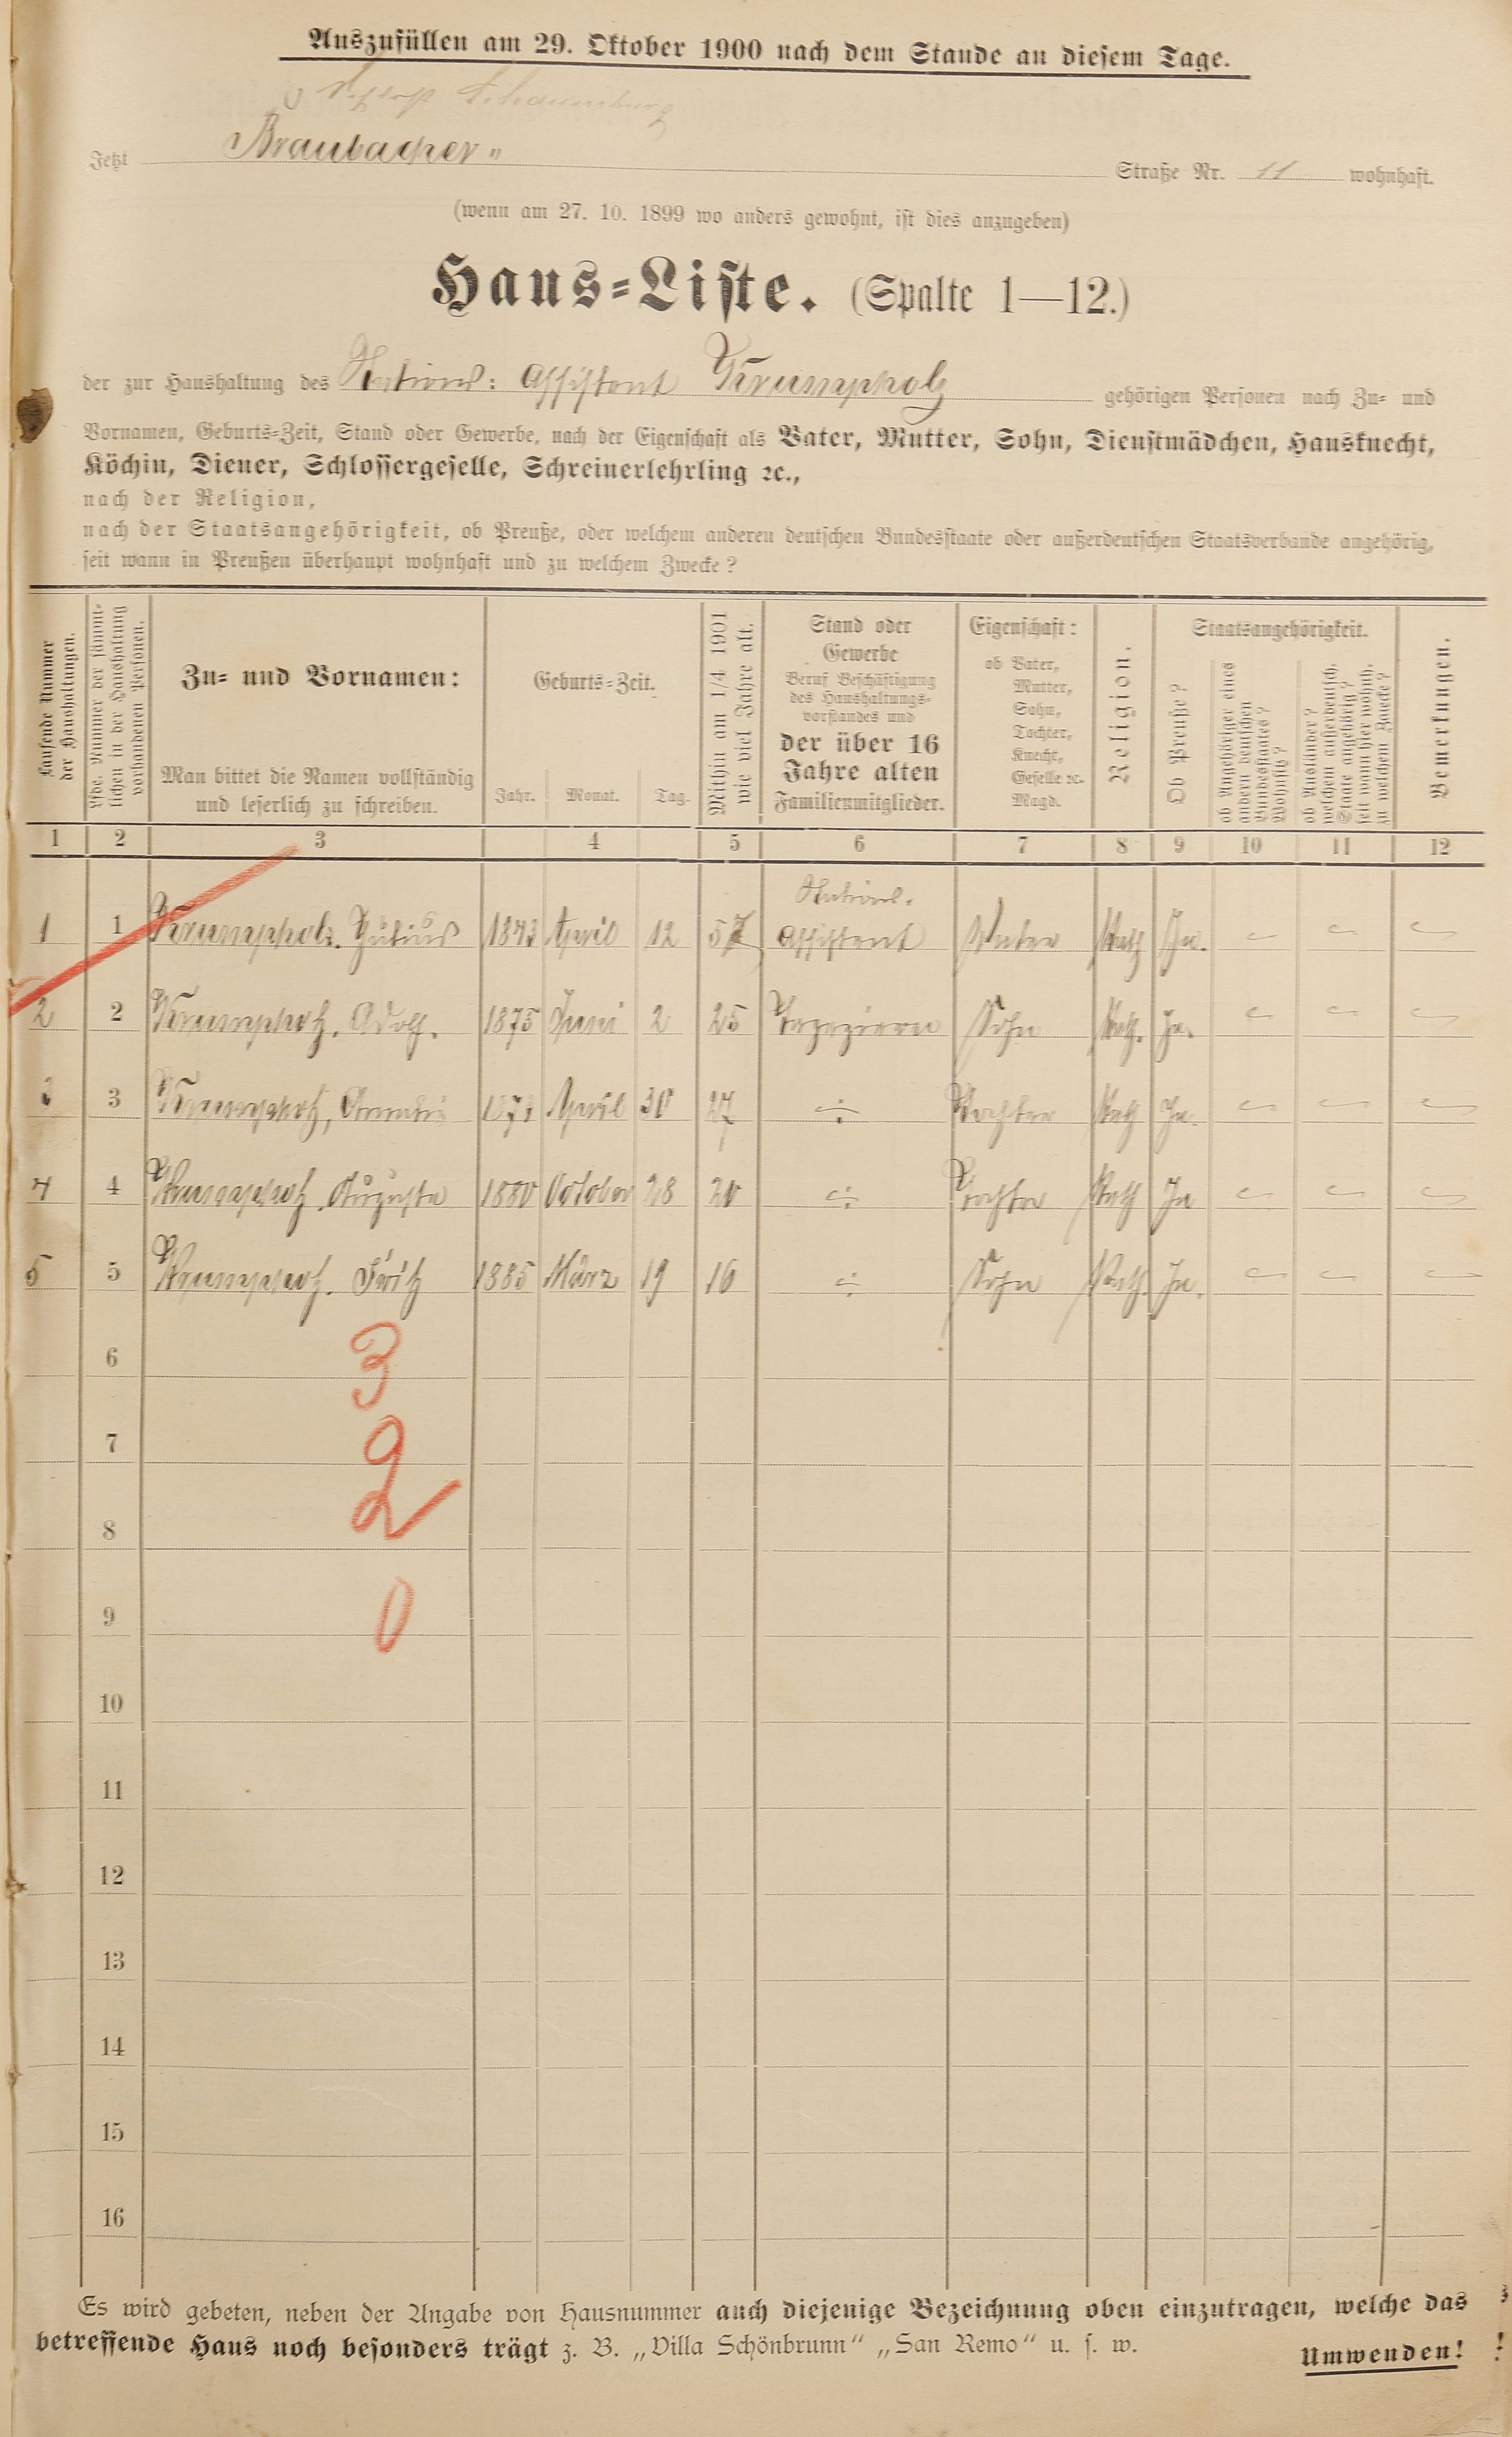 Auszufüllen am 29. Oktober 1900 nach dem Stande an diesem Tage.
Schaumburg
Jetzt Braubacher " Straße Nr. 11 wohnhaft.
(wenn am 27. 10. 1899 wo anders gewohnt, ist dies anzugeben)
Haus-Liste. (Spalte 1—12.)
der zur Haushaltung des Stations: Assistent Krumpholz gehörigen Personen nach Zu- und
Vornamen, Geburts-Zeit, Stand oder Gewerbe, nach der Eigenschaft als Vater, Mutter, Sohn, Dienstmädchen, Hausknecht,
Köchin, Diener, Schlossergeselle, Schreinerlehrling ꝛc.,
nach der Religion,
nach der Staatsangehörigkeit, ob Preuße, oder welchem anderen deutschen Bundesstaate oder außerdeutschen Staatsverbande angehörig,
seit wann in Preußen überhaupt wohnhaft und zu welchem Zwecke?
Laufende Nummer
der Haushaltungen.
Lfde. Nummer der sämmt-
lichen in der Haushaltung
vorhandenen Personen.
Zu- und Vornamen:
Man bittet die Namen vollständig
und leserlich zu schreiben.
Geburts-Zeit.
Jahr. Monat. Tag.
Mithin am 1/4 1901
wie viel Jahre alt.
Stand oder
Gewerbe
Beruf Beschäftigung
des Haushaltungs-
vorstandes und
der über 16
Jahre alten
Familienmitglieder.
Eigenschaft:
ob Vater,
Mutter,
Sohn,
Tochter,
Knecht,
Geselle ꝛc.
Magd.
Religion.
Staatsangehörigkeit.
Ob Preuße?
ob Angehöriger eines
andern deutschen
Bundesstaates?
Wohnsitz?
ob Ausländer?
welchem außerdeutsch.
Staate angehörig?
seit wann hier wohnh.
zu welchem Zwecke?
Bemerkungen.
1 2 3 4 5 6 7 8 9 10 11 12
Stations.
1 1 Krumpholz. Julius 1843 April 12 57 Assistent Vater Kath Ja. – – –
2 2 Krumpholz. Adolf. 1875 Juni 2 25 Tapezierer Sohn Kath. Ja. – – –
3 3 Krumpholz, April 30 27 ÷ Tochter Kath Ja. – – –
4 4 Krumpholz Augusta 1880 October 28 20 ÷ Tochter Kath Ja – – –
5 5 Krumpholz. Fritz 1885 März 19 16 ÷ Sohn Kath. Ja. – – –
6
3
7
2
8
9
0
10
11
12
13
14
15
16
Es wird gebeten, neben der Angabe von Hausnummer auch diejenige Bezeichnung oben einzutragen, welche das
betreffende Haus noch besonders trägt z. B. „Villa Schönbrunn“ „San Remo“ u. s. w.
Umwenden!